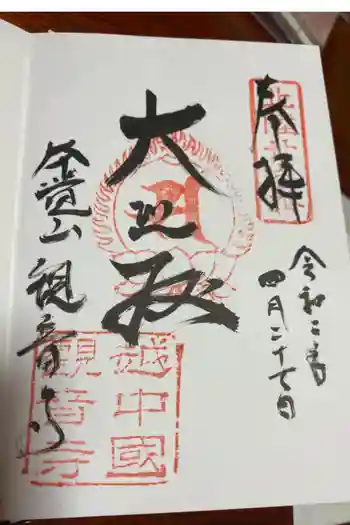 奉拝
令和二年
四月二十七日
大悲殿
金豊山 観音寺
越中國
觀音寺